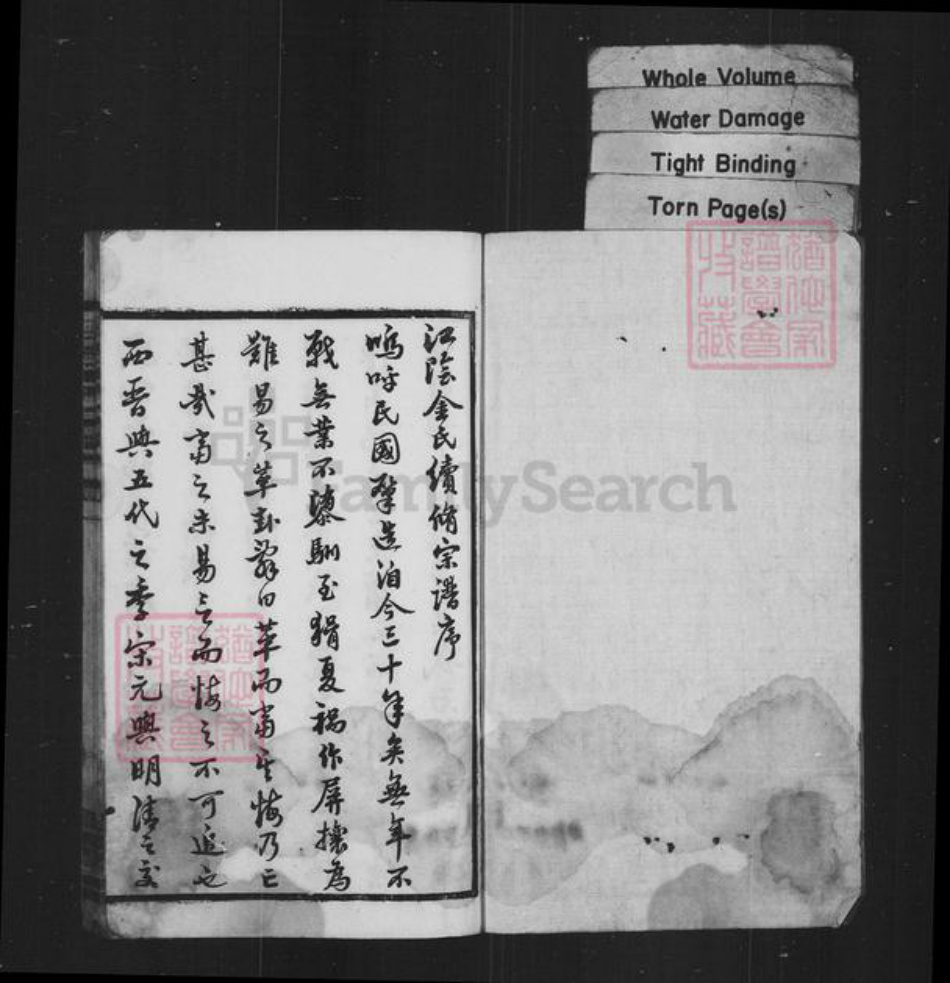 Whole Volume
Water Damage
Tight Binding
Torn Page(s)
江陰金氏續脩宗譜序
嗚呼民國肇造洎今三十年矣無年不
戰無業不隳馴至猾夏禍作屏攘為
難易之革卦辭曰革而當其悔乃亡
甚哉當之未易言而悔之不可追也
西晉與五代之季宋元與明清之交
FamilySearch